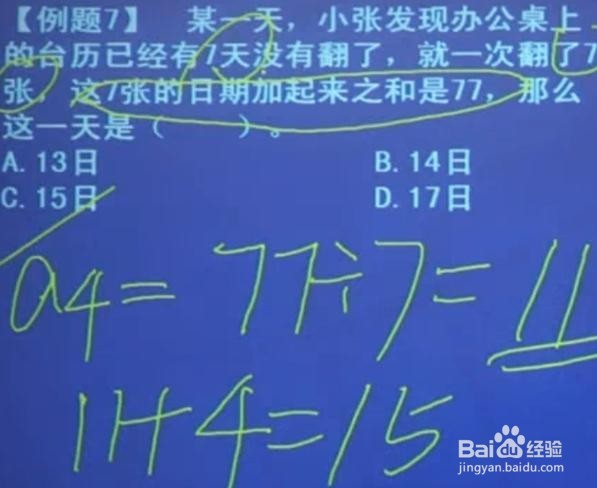 【例题7】 某一天，小张发现办公桌上
的台历已经有7天没有翻了，就一次翻了7
张，这7张的日期加起来之和是77，那么
这一天是（ ）。
A.13日 B.14日
C.15日 D.17日
a4=77÷7=11
11+4=15
Baidu经验
jingyan.baidu.com